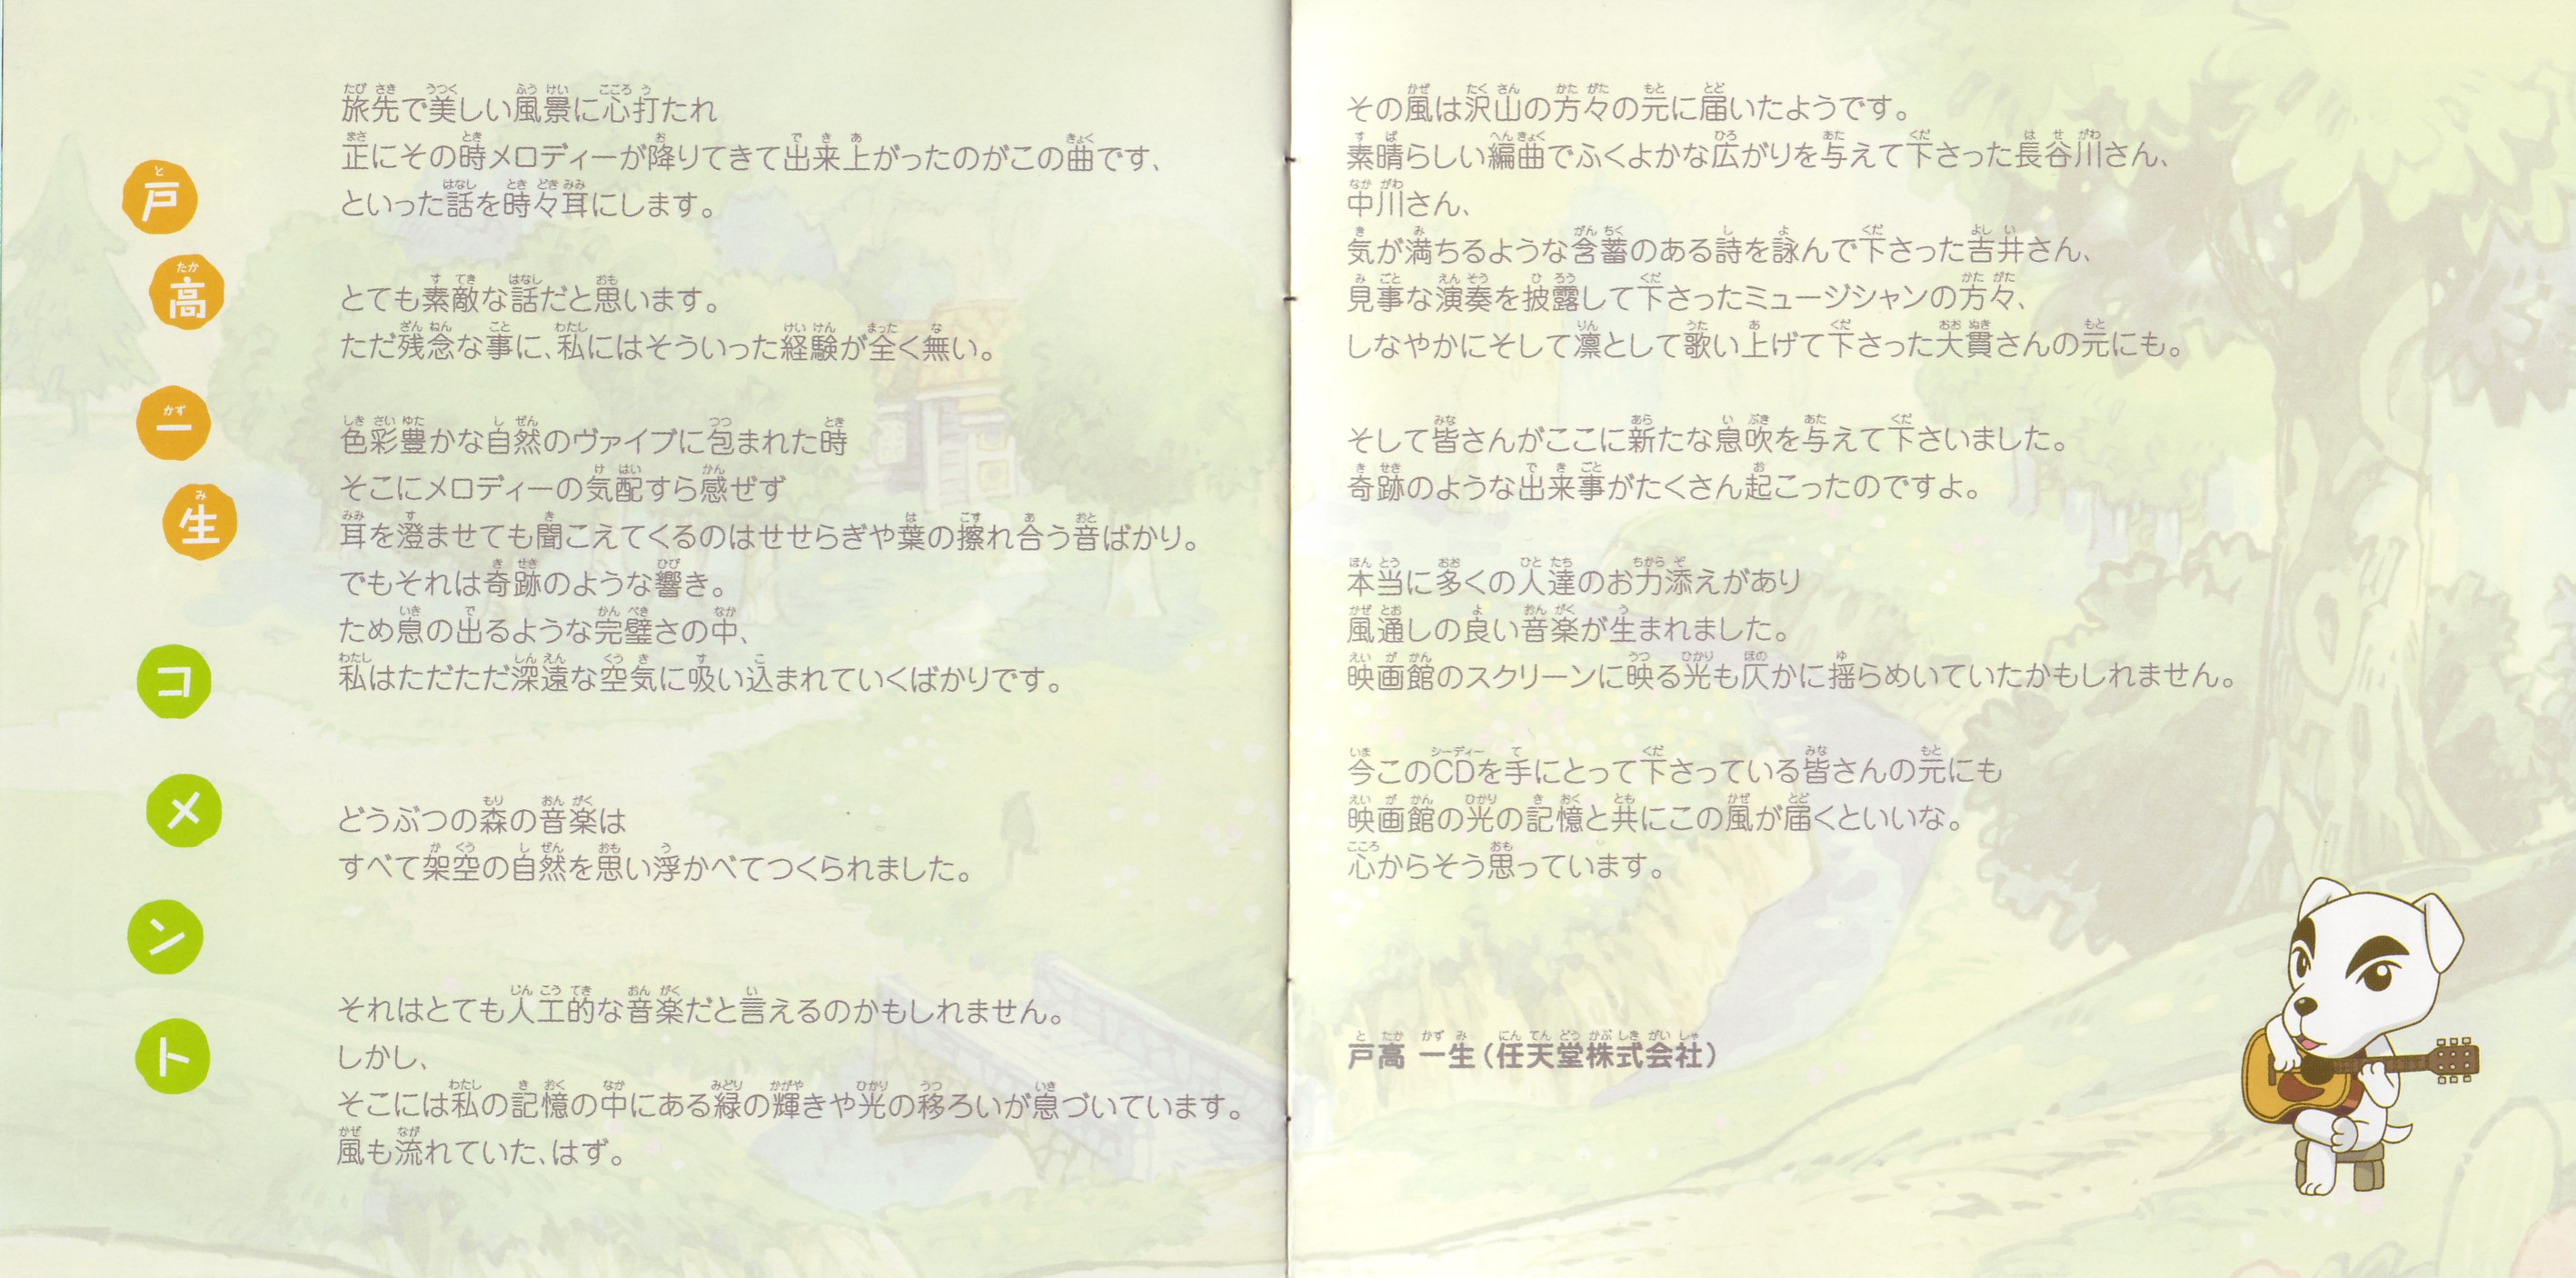 戸高一生コメント
旅先で美しい風景に心打たれ
正にその時メロディーが降りてきて出来上がったのがこの曲です、
といった話を時々耳にします。
とても素敵な話だと思います。
ただ残念な事に、私にはそういった経験が全く無い。
色彩豊かな自然のヴァイブに包まれた時
そこにメロディーの気配すら感ぜず
耳を澄ませても聞こえてくるのはせせらぎや葉の擦れ合う音ばかり。
でもそれは奇跡のような響き。
ため息の出るような完璧さの中、
私はただただ深遠な空気に吸い込まれていくばかりです。
どうぶつの森の音楽は
すべて架空の自然を思い浮かべてつくられました。
それはとても人工的な音楽だと言えるのかもしれません。
しかし、
そこには私の記憶の中にある緑の輝きや光の移ろいが息づいています。
風も流れていた、はず。
その風は沢山の方々の元に届いたようです。
素晴らしい編曲でふくよかな広がりを与えて下さった長谷川さん、
中川さん、
気が満ちるような含蓄のある詩を詠んで下さった吉井さん、
見事な演奏を披露して下さったミュージシャンの方々、
しなやかにそして凛として歌い上げて下さった大貫さんの元にも。
そして皆さんがここに新たな息吹を与えて下さいました。
奇跡のような出来事がたくさん起こったのですよ。
本当に多くの人達のお力添えがあり
風通しの良い音楽が生まれました。
映画館のスクリーンに映る光も仄かに揺らめいていたかもしれません。
今このCDを手にとって下さっている皆さんの元にも
映画館の光の記憶と共にこの風が届くといいな。
心からそう思っています。
戸高 一生(任天堂株式会社)